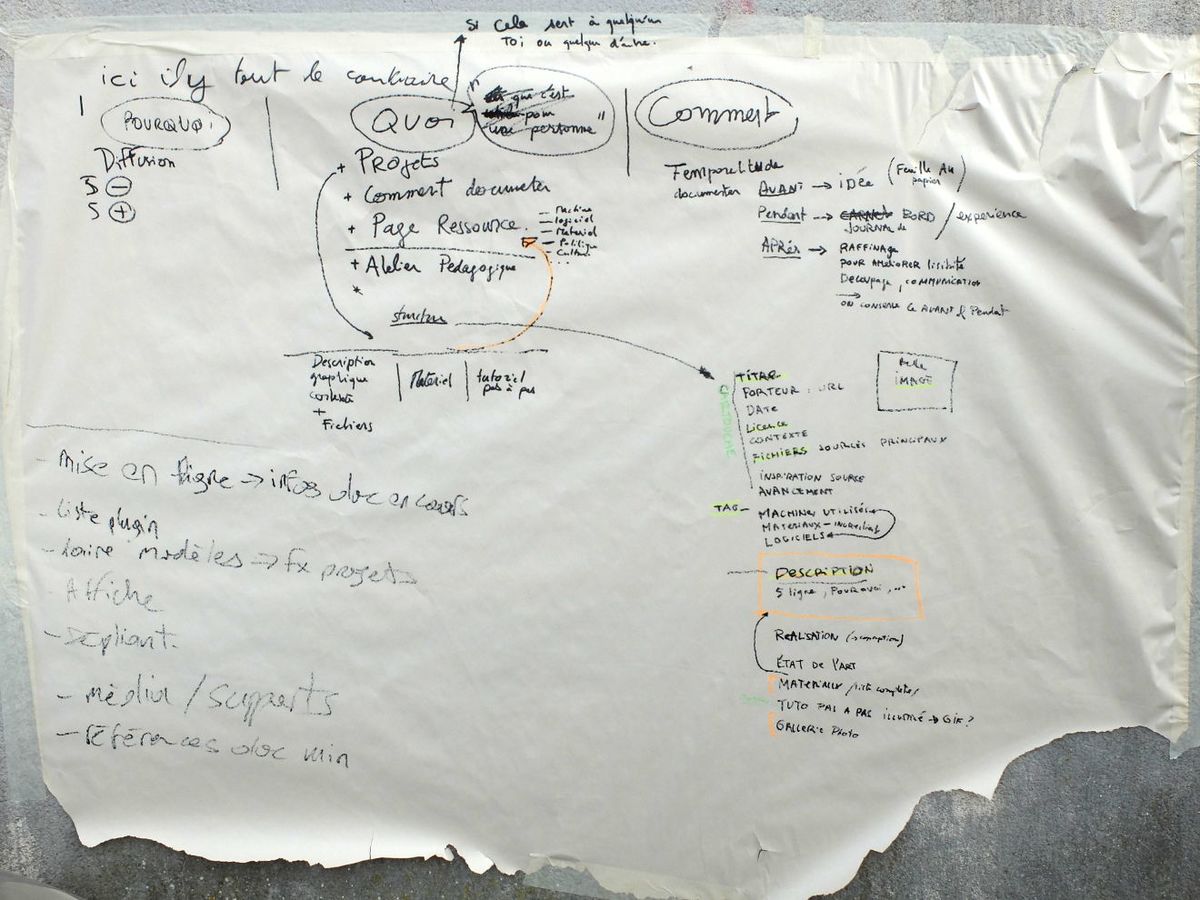 si cela sert à quelqu'un
Toi ou quelqu d'autre.
ici il y tout le contraire
POURQUOI
Diffusion
5 -
5 +
QUOI
que c'est
pour
une personne"
+ Projets
+ Comment documenter
+ Page Ressource.
— Machine
— logiciel
— Materiel
— Politique
— Culture
...
+ Atelier Pedagogique
*
structure
Description
graphique
contexte
+
Fichiers
Materiel
tutoriel
pas à pas
Comment
documenter
AVANT → iDée (Feuille AU
papier)
Pendant → CARNET BORD / experience
JOURNAL de
APRÉS → RAFFINAGE
POUR AMELIORER lisibilité
Decoupage, COMMUNICATION
→ ON CONSERVE le AVANT & Pendant
IMAGE
CARTOUCHE
TITRE
PORTEUR : URL
DATE
Licence
CONTEXTE
FICHIERS SOURCES PRINCIPAUX
INSPIRATION SOURCE
AVANCEMENT
TAG- MACHINES UTILISÉES
MATERIAUX - ingredient
LOGICIELS
DESCRIPTION
5 ligne, POURQUOI,...
REALISATION
ÉTAT DE l'ART
MATERIAUX /liste complete/
TUTO PAS A PAS illustré → GiF?
GALLERIE PHOTO
- mise en ligne → infos doc en cours
- Liste plugin
- faire modèles → Ex projets
- Affiche
- Depliant.
- média / supports
- références doc min